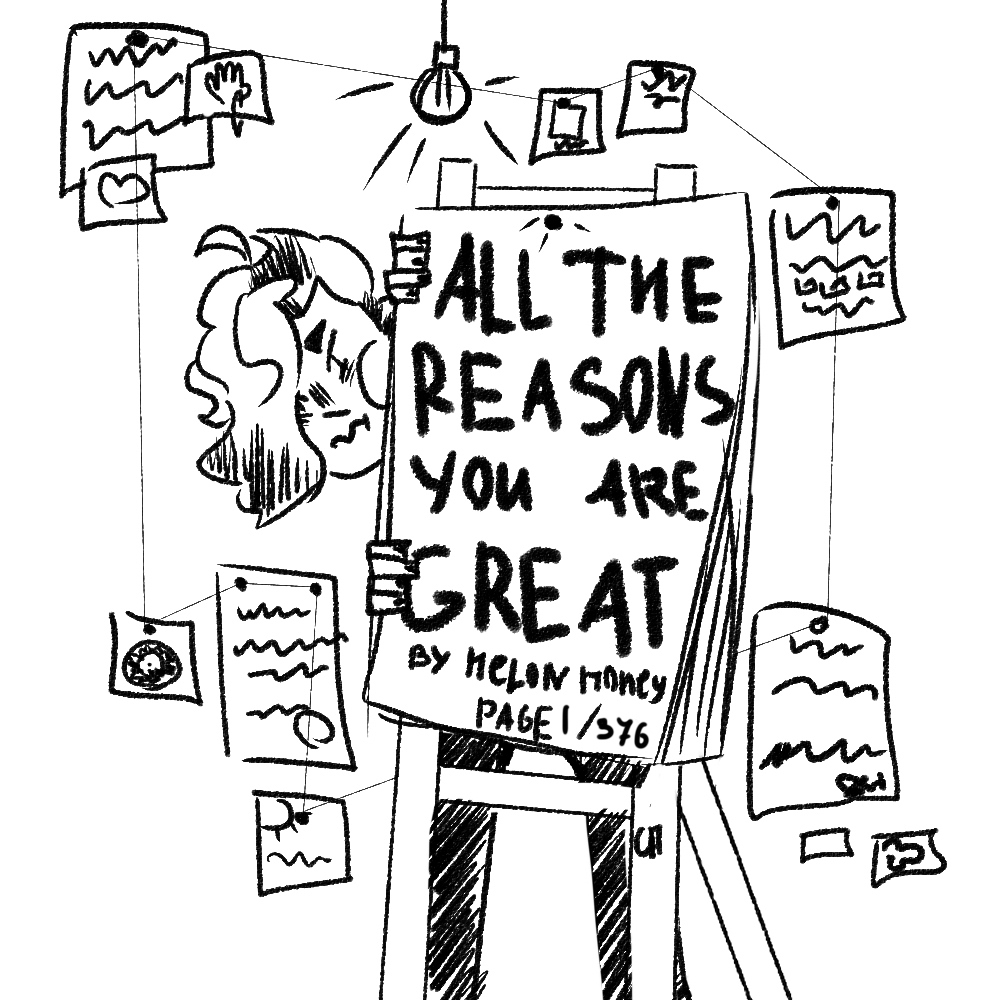 ALL THE
REASONS
YOU ARE
GREAT
BY MELON MONEY
PAGE 1/376